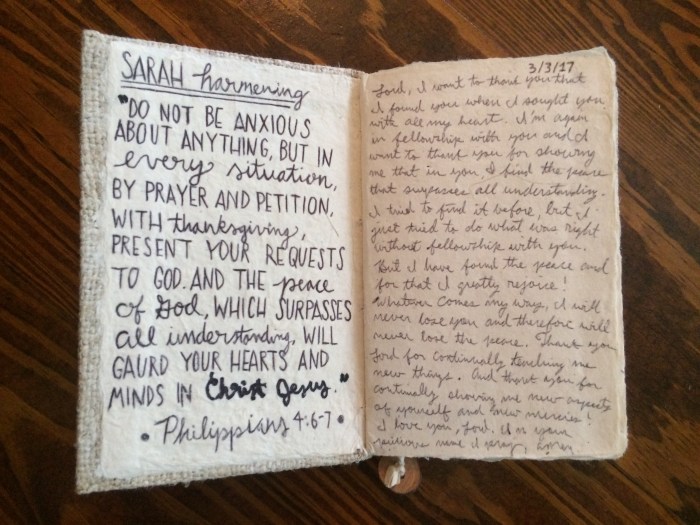 SARAH harmening
"DO NOT BE ANXIOUS
ABOUT ANYTHING, BUT IN
every situation,
BY PRAYER AND PETITION,
WITH thanksgiving,
PRESENT YOUR REQUESTS
TO GOD. AND THE peace
of God, WHICH SURPASSES
all understanding, WILL
GAURD YOUR HEARTS AND
MINDS IN Christ Jesus."
• Philippians 4:6-7 •
3/3/17
Lord, I want to thank you that
I found you when I sought you
with all my heart. I'm again
in fellowship with you and I
want to thank you for showing
me that in you, I find the peace
that surpasses all understanding.
I tried to find it before, but I
just tried to do what was right
without fellowship with you.
But I have found the peace and
for that I greatly rejoice!
Whatever comes my way, I will
never lose you and therefore will
never lose the peace. Thank you
Lord for continually teaching me
new things. And thank you for
continually showing me new aspects
of yourself and new mercies!
I love you, Lord. In your
name I pray,